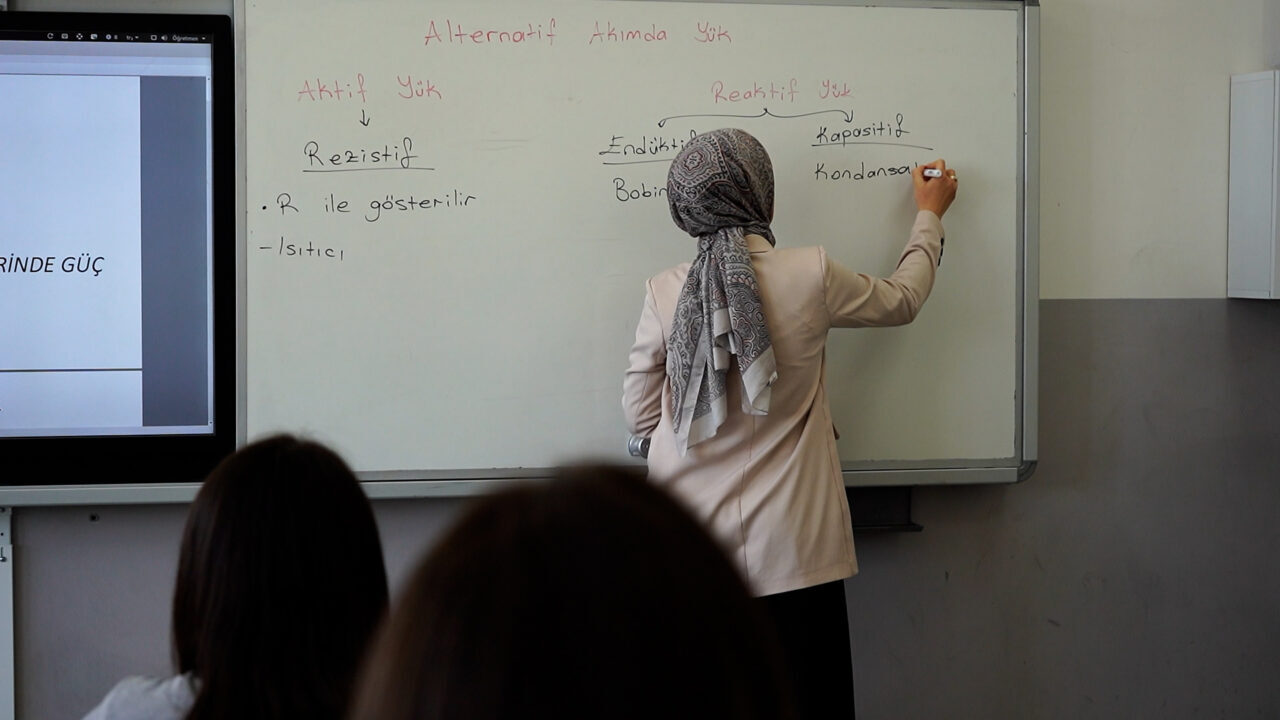 Öğretmen
RİNDE GÜÇ
Alternatif Akımda Yük
Aktif Yük
Rezistif
• R ile gösterilir
- Isıtıcı
Reaktif Yük
Endükti
Bobin
Kapasitif
Kondansa